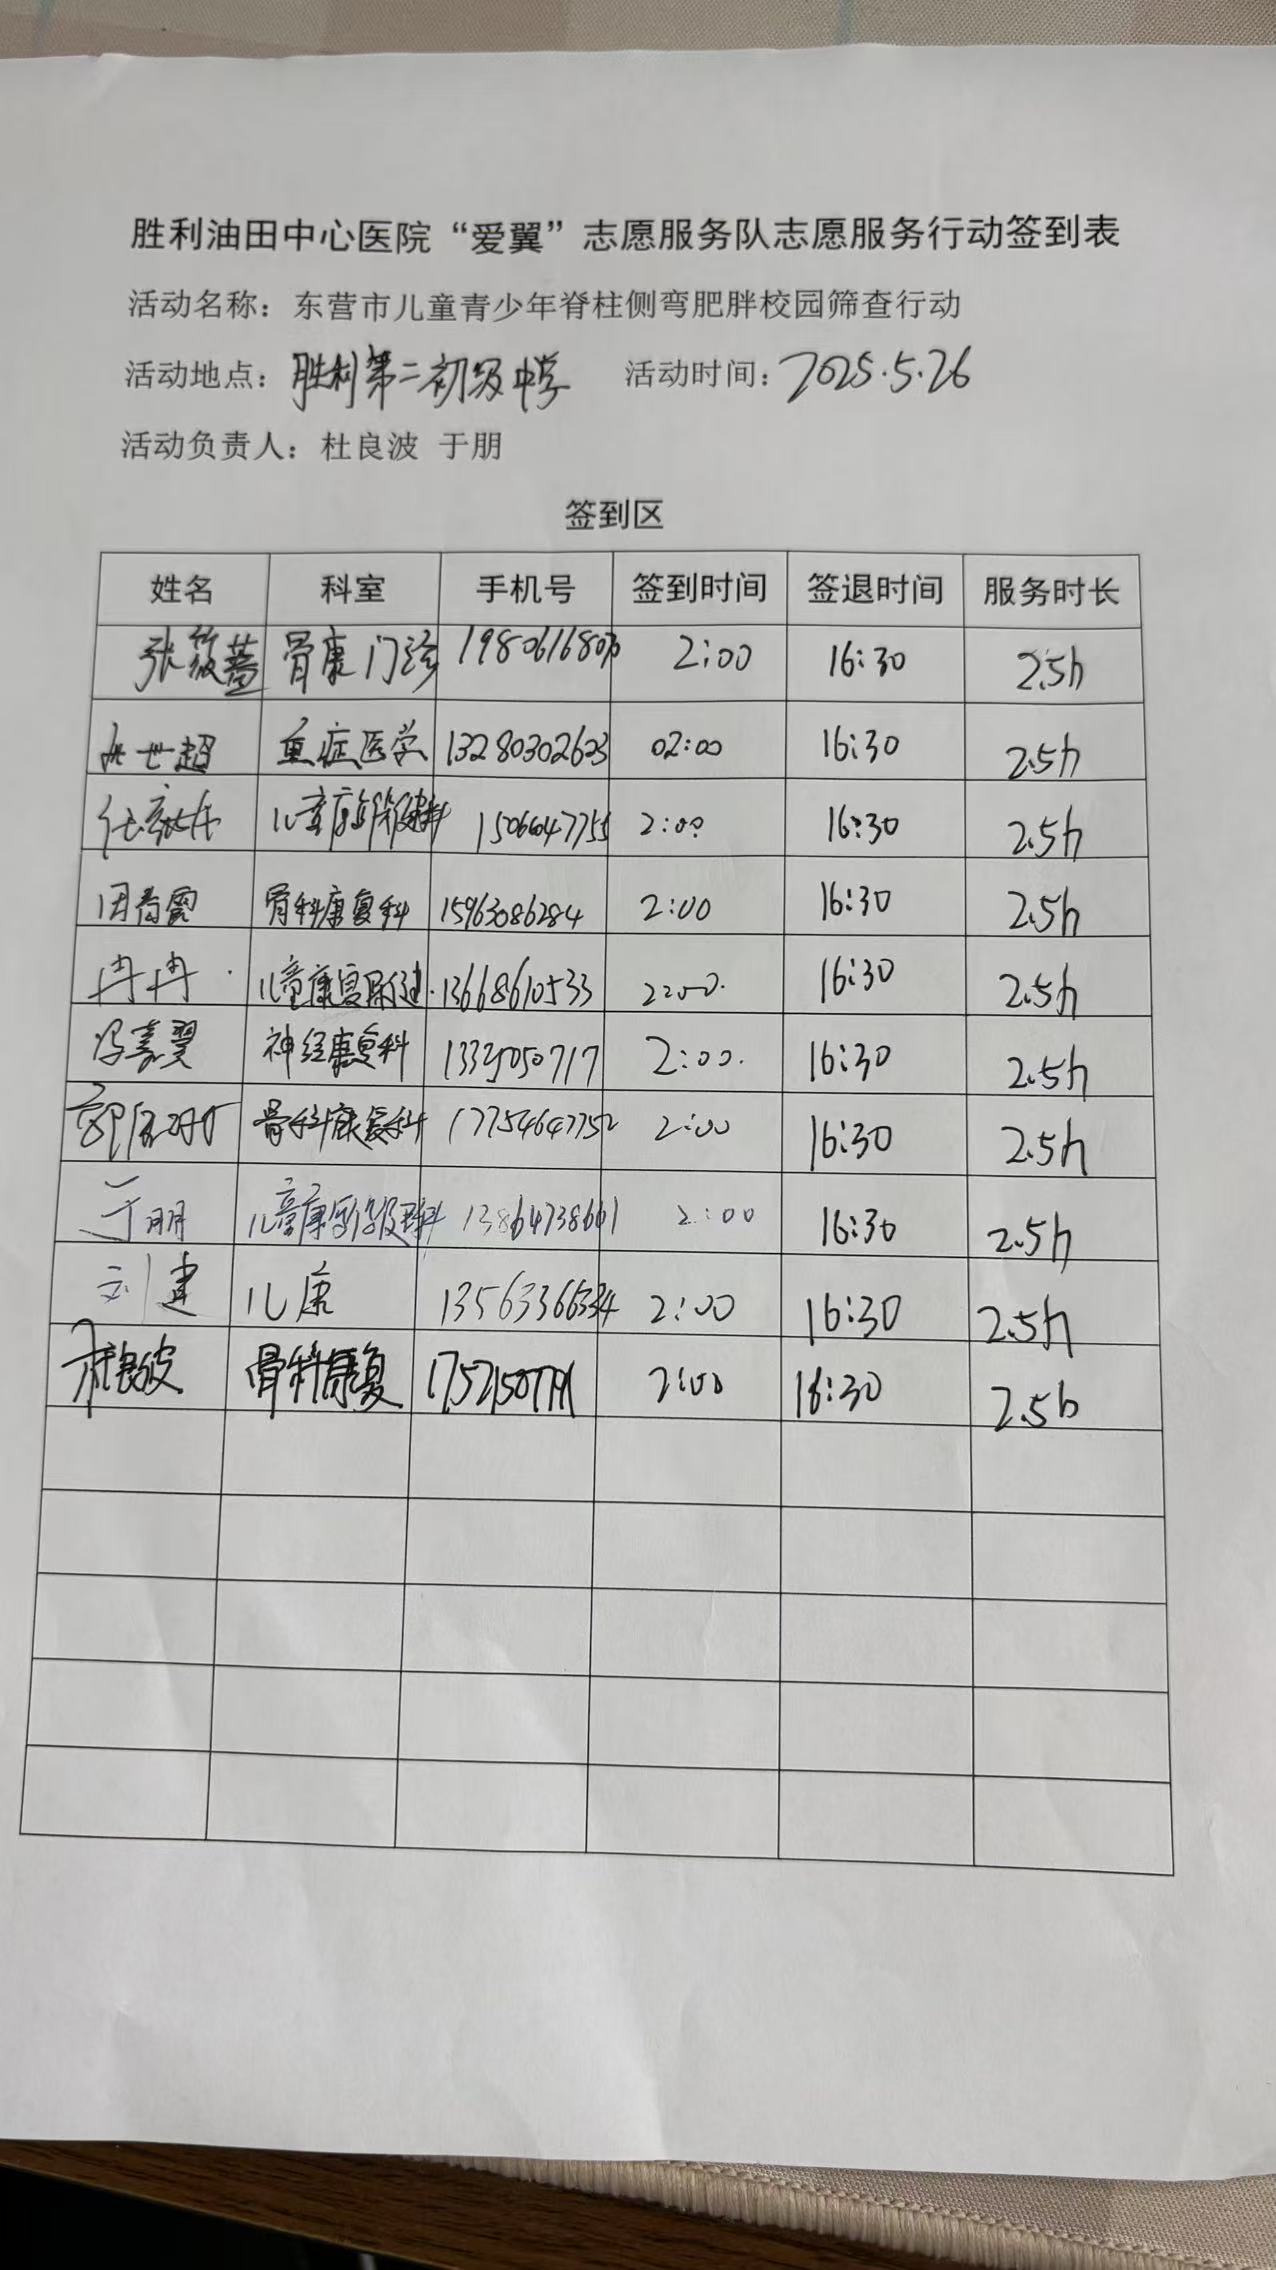 胜利油田中心医院“爱翼”志愿服务队志愿服务行动签到表
活动名称：东营市儿童青少年脊柱侧弯肥胖校园筛查行动
活动地点：胜利第二初级中学 活动时间：2025.5.26
活动负责人：杜良波 于朋
签到区
姓名 科室 手机号 签到时间 签退时间 服务时长
张筱蔷 骨康门诊 2:00 16:30 2.5h
世超 重症医学 13280302623 02:00 16:30 2.5h
任 儿童康复保健科 15066047755 2:00 16:30 2.5h
骨科康复科 15963086284 2:00 16:30 2.5h
冉冉 儿童康复保健 13668610533 2:00 16:30 2.5h
冯嘉翼 神经康复科 13325050717 2:00. 16:30 2.5h
郭 骨科康复科 17754647752 2:00 16:30 2.5h
于朋 儿童康复保健科 13864738661 2:00 16:30 2.5h
刘建 儿康 13563366334 2:00 16:30 2.5h
杜良波 骨科康复 2:00 16:30 2.5h